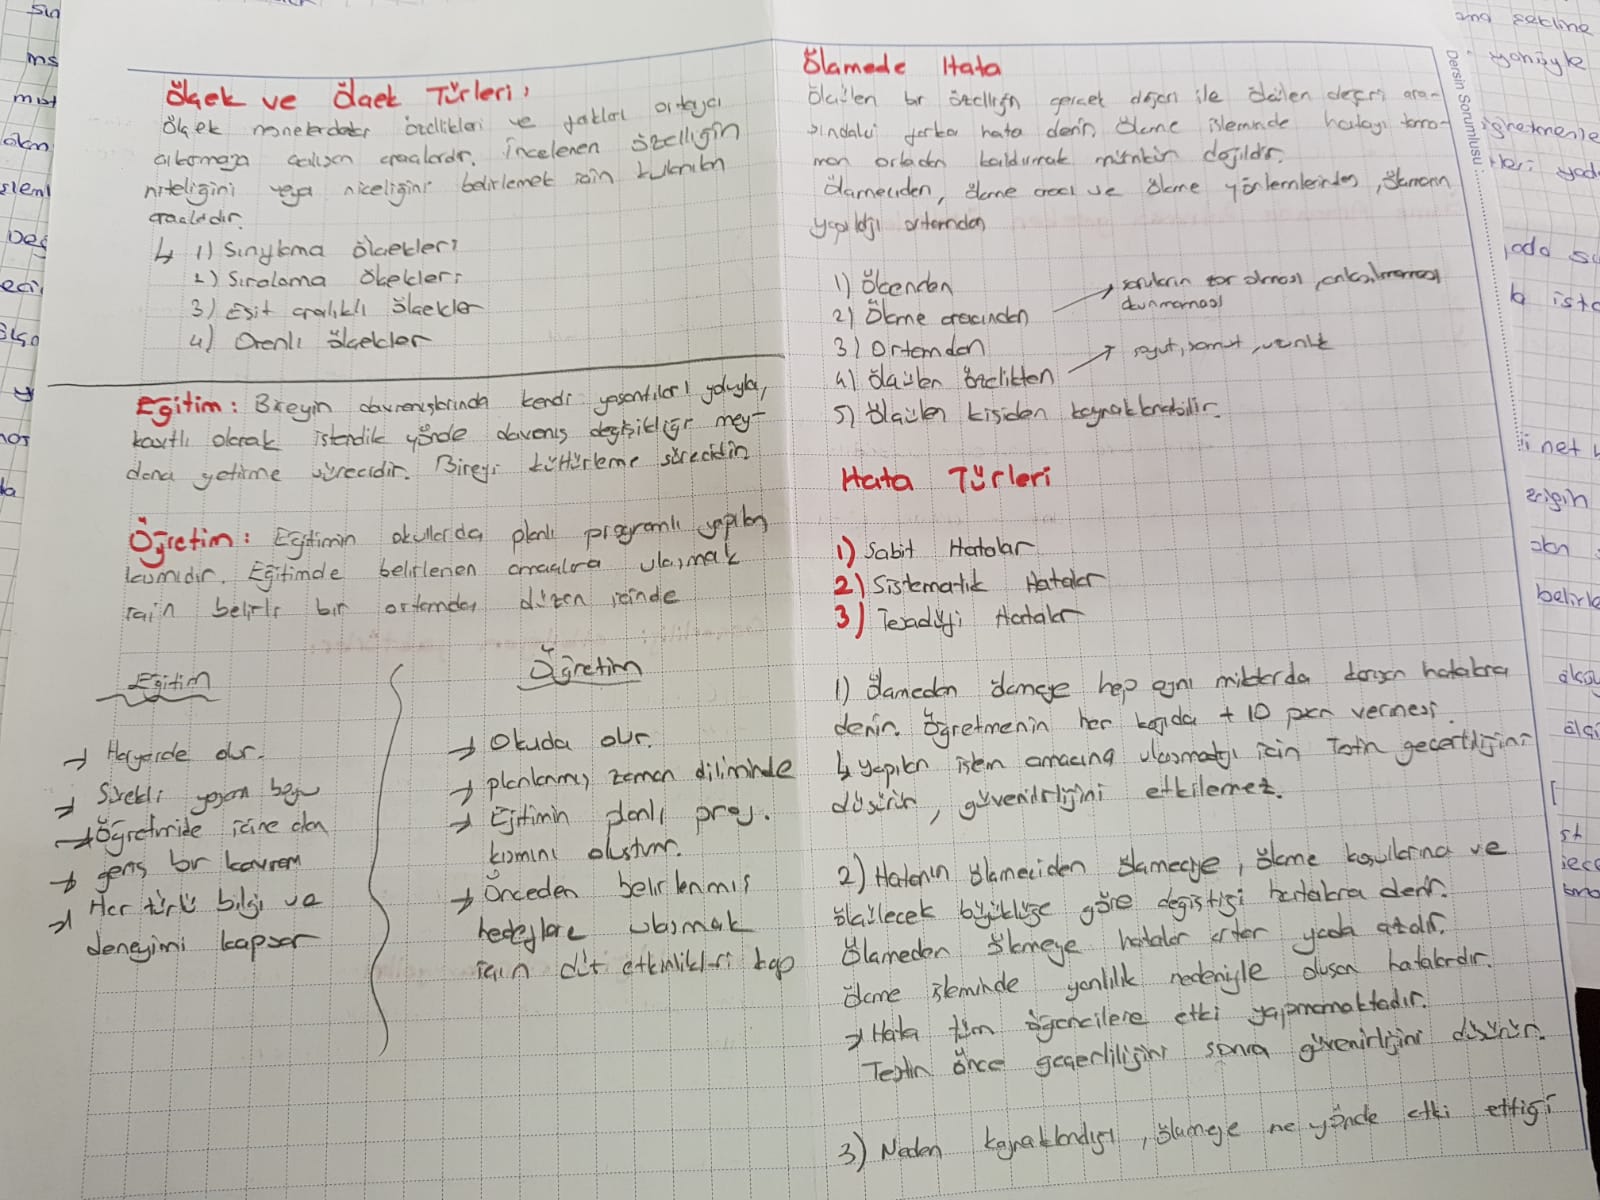 Ölçek ve Ölçek Türleri:
Ölçek nesnelerdeki özellikleri ve farkları ortaya
çıkarmaya çalışan araçlardır. İncelenen özelliğin
niteliğini veya niceliğini belirlemek için kullanılan
araçlardır.
↳ 1) Sınıflama ölçekleri
2) Sıralama ölçekleri
3) Eşit aralıklı ölçekler
4) Oranlı ölçekler
Eğitim: Bireyin davranışlarında kendi yaşantıları yoluyla,
kasıtlı olarak istendik yönde davranış değişikliği mey-
dana getirme sürecidir. Bireyi kültürleme sürecidir.
Öğretim: Eğitimin okullarda planlı programlı yapılan
kısmıdır. Eğitimde belirlenen amaçlara ulaşmak
için belirli bir ortamda, düzen içinde
Eğitim
→ Heryerde olur.
→ Sürekli yaşam boyu
→ Öğretimide içine alan
→ geniş bir kavram
→ Her türlü bilgi ve
deneyimi kapsar
Öğretim
→ Okulda olur.
→ planlanmış zaman diliminde
→ Eğitimin planlı prog.
kısmını oluşturur.
→ Önceden belirlenmiş
hedeflere ulaşmak
için etkinlikleri kap
Ölçmede Hata
Ölçülen bir özelliğin gerçek değeri ile ölçülen değeri ara-
sındaki farka hata denir. Ölçme işleminde hatayı tama-
men ortadan kaldırmak mümkün değildir.
Ölçmeciden, ölçme aracı ve ölçme yöntemlerinden, ölçmenin
yapıldığı ortamdan
1) Ölçenden
2) Ölçme aracından → soruların zor olması, anlaşılmaması,
okunmaması
3) Ortamdan
4) Ölçülen özellikten → soyut, somut,
5) Ölçülen kişiden kaynaklanabilir.
Hata Türleri
1) Sabit Hatalar
2) Sistematik Hatalar
3) Tesadüfi Hatalar
1) Ölçmeden ölçmeye hep aynı miktarda karışan hatalara
denir. Öğretmenin her kağıda + 10 puan vermesi.
↳ yapılan işlem amacına ulaşmadığı için Testin geçerliliğini
düşürür, güvenirliğini etkilemez.
2) Hatanın ölçmeciden ölçmeciye, ölçme koşullarına ve
ölçülecek büyüklüğe göre değiştiği hatalara denir.
Ölçmeden ölçmeye hatalar artar yada azalır.
ölçme işleminde yanlılık nedeniyle oluşan hatalardır.
→ Hata tüm öğrencilere etki yapmamaktadır.
Testin önce geçerliliğini sonra güvenirliğini düşürür.
3) Neden kaynaklandığı, ölçmeye ne yönde etki ettiği
Dersin Sorumlusu: